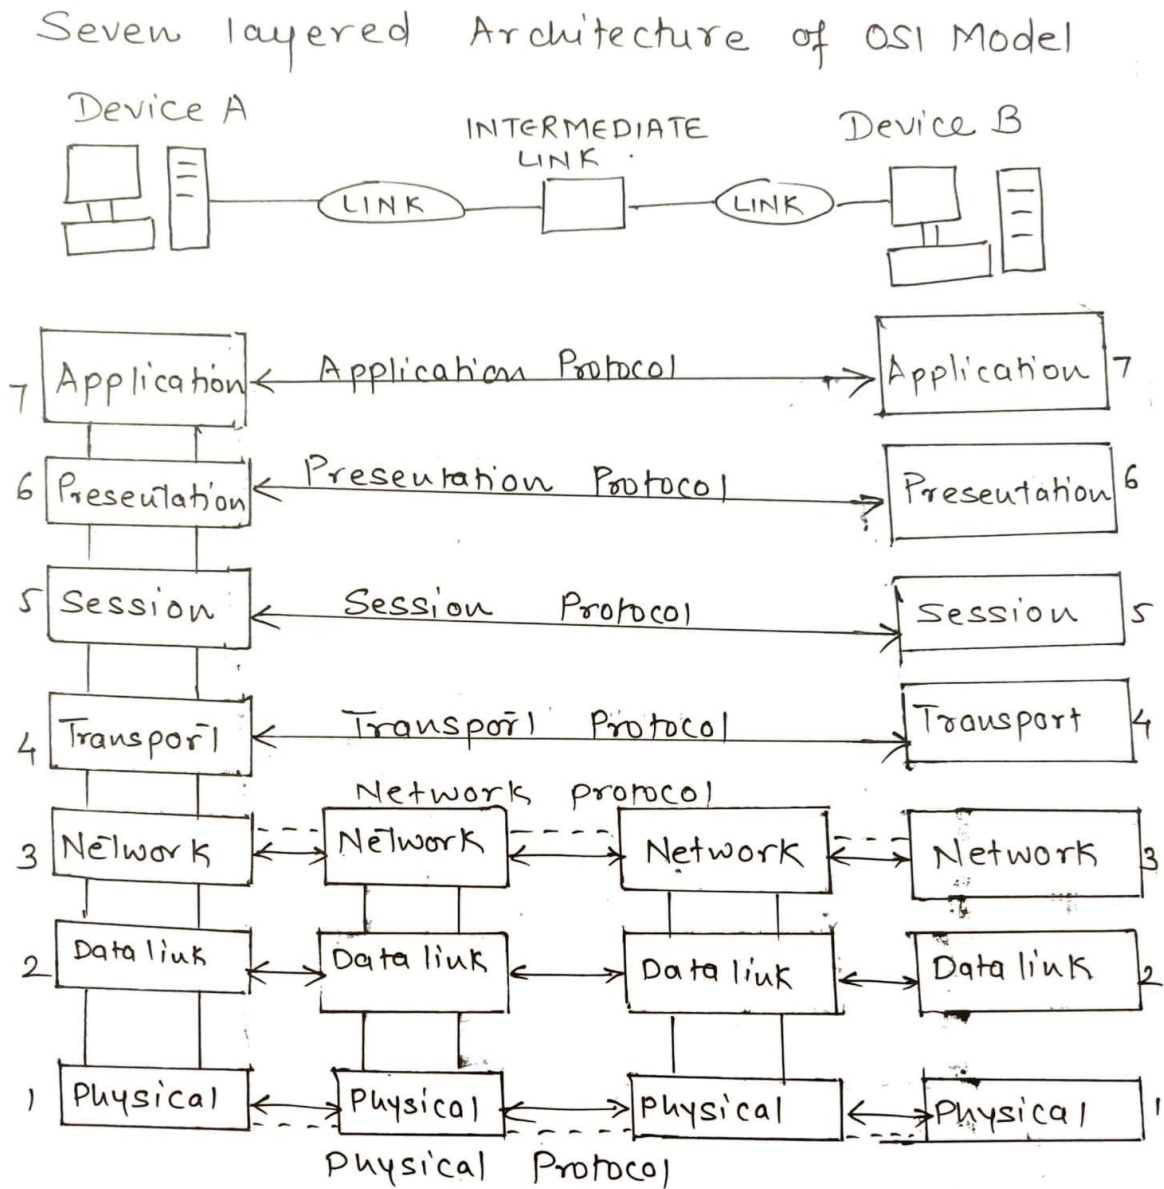 Seven layered Architecture of OSI Model
Device A
INTERMEDIATE
LINK
Device B
LINK
LINK
7 Application Application Protocol Application 7
6 Presentation Presentation Protocol Presentation 6
5 Session Session Protocol Session 5
4 Transport Transport Protocol Transport 4
Network protocol
3 Network Network Network Network 3
2 Data link Data link Data link Data link 2
1 Physical Physical Physical Physical 1
Physical Protocol